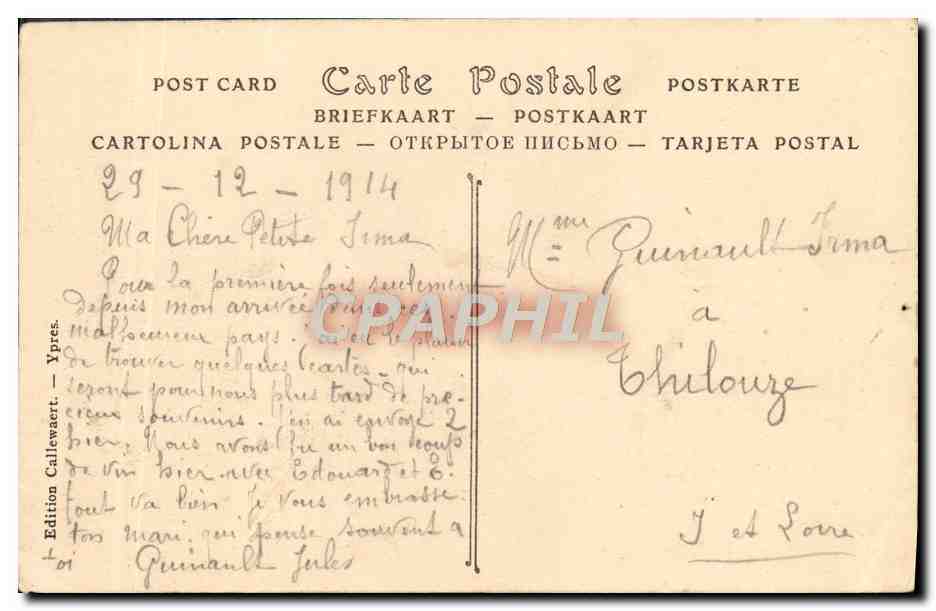 POST CARD Carte Postale POSTKARTE
BRIEFKAART — POSTKAART
CARTOLINA POSTALE — ОТКРЫТОЕ ПИСЬМО — TARJETA POSTAL
29 - 12 - 1914
Ma Chère Petite Irma
Pour la première fois seulement
depuis mon arrivée dans ces
malheureux pays. J'ai eu le plaisir
de trouver quelques cartes qui
seront pour nous plus tard de pré-
cieux souvenirs. J'en ai envoyé 2
hier. Nous avons bu un bon coup
de vin hier avec Edouard et E.
tout va bien. Je vous embrasse.
ton mari qui pense souvent a
toi Guinault Jules
Mme Guinault Irma
à
Thilouze
I et Loire
Edition Callewaert. — Ypres.
CPAPHIL